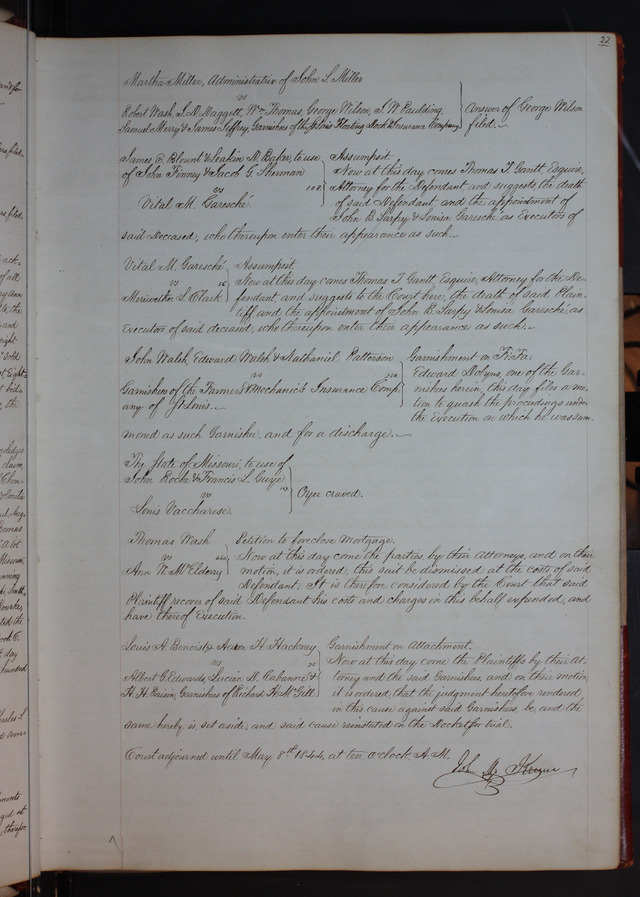 27
Martha Miller, Administratrix of John S. Miller
vs
Robert Wash, S. D. Maggett, Wm Thomas, George Wilson, J. W. Paulding, Answer of George Wilson
Samuel Merry & James Jeffrey, Garnishees of the St Louis Floating Dock & Insurance Company filed.
James E. Blount & Leakin M. Baker, to use Assumpsit.
of John Finney & Jacob G. Sherman Now at this day comes Thomas T. Gantt, Esquire,
vs Attorney for the Defendant, and suggests the death
Vital M. Garesché of said Defendant, and the appointment of
John B. Sarpy & Louisa Garesché as Executors of
said deceased, who thereupon enter their appearance as such.
Vital M. Garesché Assumpsit.
vs Now at this day comes Thomas T. Gantt, Esquire, Attorney for the De-
Meriwether L. Clark fendant, and suggests to the Court here, the death of said Plain-
tiff and the appointment of John B. Sarpy & Louisa Garesché, as
Executors of said deceased, who thereupon enter their appearance as such.
John Walsh, Edward Walsh & Nathaniel Patterson Garnishment on Fi: Fa:
vs Edward Dobyns, one of the Gar-
Garnishees of the Farmers & Mechanic's Insurance Comp- nishees herein, this day files a mo-
any of St. Louis. tion to quash the proceedings under
the Execution on which he was sum-
moned as such Garnishee, and for a discharge.
The State of Missouri, to use of
John Roche & Francis L.
vs Oyer craved.
Louis Vaccharese.
Thomas Wash Petition to foreclose Mortgage.
vs Now at this day come the parties by their Attorneys, and on their
Ann W. McElderry motion, it is ordered, this suit be dismissed at the costs of said
Defendant. It is therefore considered by the Court that said
Plaintiff recover of said Defendant his costs and charges in this behalf expended, and
have thereof Execution.
Louis A. Benoist & Aaron H. Hackney Garnishment on Attachment.
vs Now at this day come the Plaintiffs by their At-
Albert G. Edwards, Lucien D. Cabanné & torney and the said Garnishees, and on their motion
H. H. Paison, Garnishees of Richard H. McGill. it is ordered that the judgment heretofore rendered
in this cause against said Garnishees, be, and the
same hereby is, set aside, and said cause reinstated on the Docket for trial.
Court adjourned until May 8th 1844, at ten o'clock, A. M.